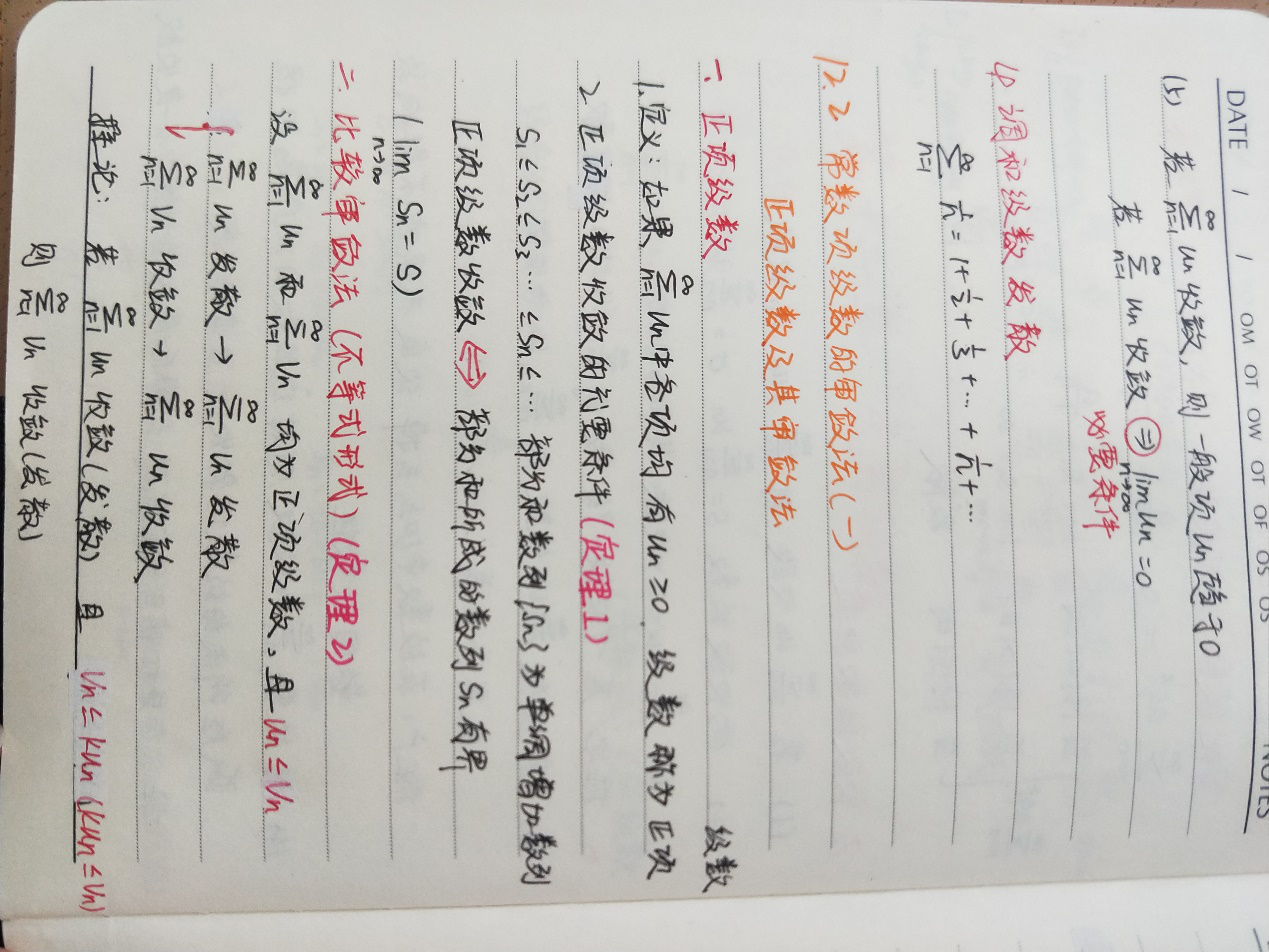 DATE / / OM OT OW OT OF OS OS
NOTES
(5) 若 ∑_{n=1}^{∞} un 收敛, 则一般项 un 趋于0
若 ∑_{n=1}^{∞} un 收敛 ⇒ lim_{n→∞} un = 0
必要条件
4) 调和级数发散
∑_{n=1}^{∞} 1/n = 1 + 1/2 + 1/3 + ... + 1/n + ...
12.2 常数项级数的审敛法(一)
正项级数及其审敛法
一. 正项级数
1.定义: 如果 ∑_{n=1}^{∞} un中各项均有 un ≥ 0. 级数称为正项
级数
2 正项级数收敛的充要条件(定理1)
S1 ≤ S2 ≤ S3 ... ≤ Sn ≤ ... 部分和数列{Sn}为单调增加数列
正项级数收敛 ⇔ 部分和所成的数列 Sn 有界
( lim_{n→∞} Sn = S)
二 比较审敛法 (不等式形式)(定理2)
设 ∑_{n=1}^{∞} un 和 ∑_{n=1}^{∞} Vn 均为正项级数。且 un ≤ Vn
{ ∑_{n=1}^{∞} un 发散 → ∑_{n=1}^{∞} Vn 发散
∑_{n=1}^{∞} Vn 收敛 → ∑_{n=1}^{∞} un 收敛
推论: 若 ∑_{n=1}^{∞} un 收敛(发散) 且 Vn ≤ kun (kun ≤ Vn)
则 ∑_{n=1}^{∞} Vn 收敛(发散)